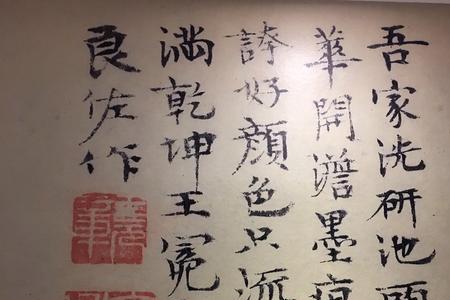 吾家洗研池
華開澹墨痕
誇好顏色只流
滿乾坤王冕
良佐作